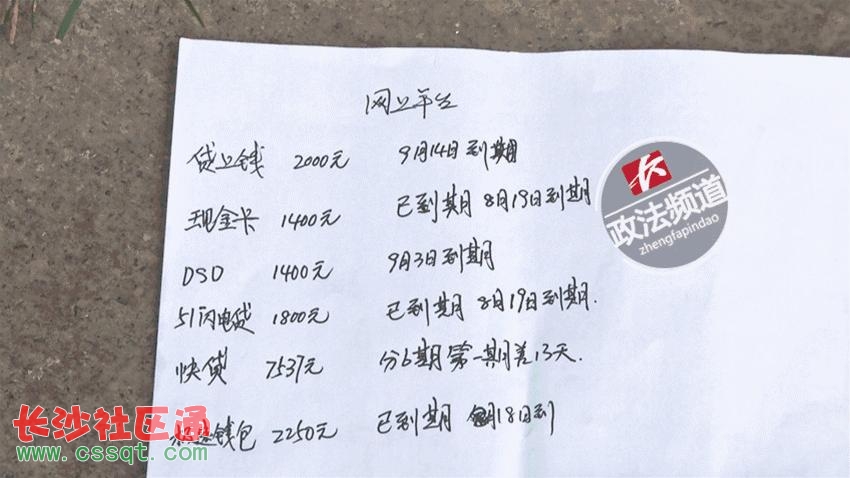 网上平台
贷上钱 2000元 9月14日到期
现金卡 1400元 已到期 8月19日到期
DSD 1400元 9月3日到期
51闪电贷 1800元 已到期 8月19日到期.
快贷 7537元 分6期 第一期差13天.
钱包 2250元 已到期 月18日到
政法频道
zhengfapindao
长沙社区通
www.cssqt.com